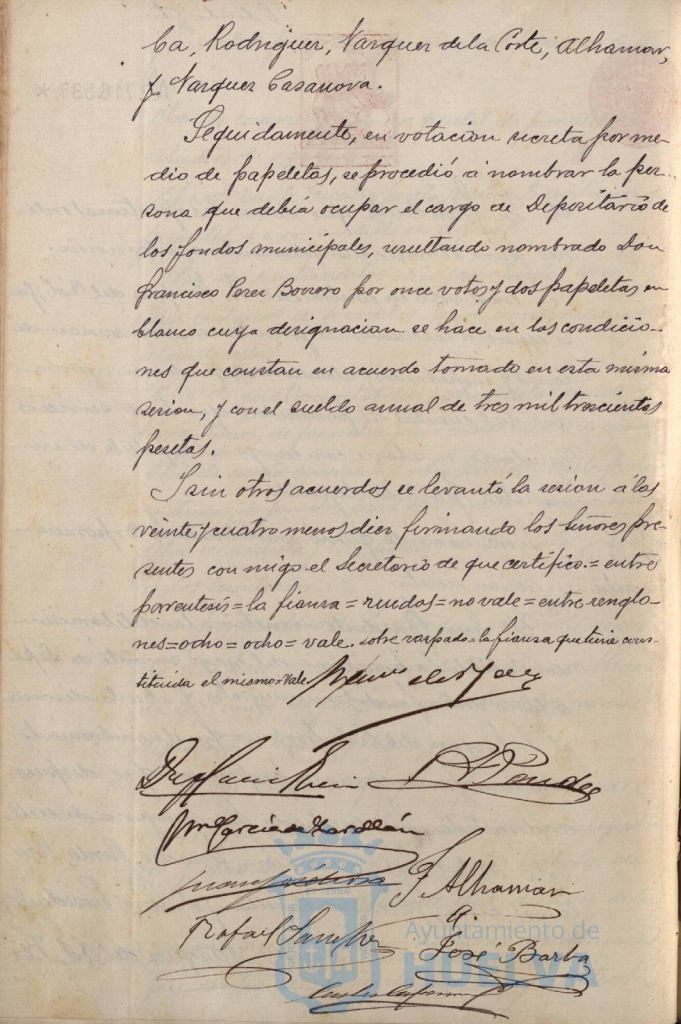 ba, Rodriguez, Vazquez de la Corte, Alhamar,
y Vazquez Casanova.
Seguidamente, en votacion secreta por me-
dio de papeletas, se procedió á nombrar la per-
sona que debia ocupar el cargo de Depositario de
los fondos municipales, resultando nombrado Don
Francisco Perez Borrero por once votos y dos papeletas en
blanco cuya designacion se hace en las condicio-
nes que constan en acuerdo tomado en esta misma
sesion, y con el sueldo anual de tres mil trescientas
pesetas.
I sin otros acuerdos se levantó la sesion á las
veinte y cuatro menos diez firmando los Señores pre-
sentes con migo el Secretario de que certifico.= entre
parentesis=la fianza=ruedas=no vale=entre renglo-
nes=ocho=ocho=vale. sobre raspado=la fianza que tiene cons-
tituida el mismo=vale
F. Alhamar
Rafael Sanchez
José Barba
Ayuntamiento de
HUELVA